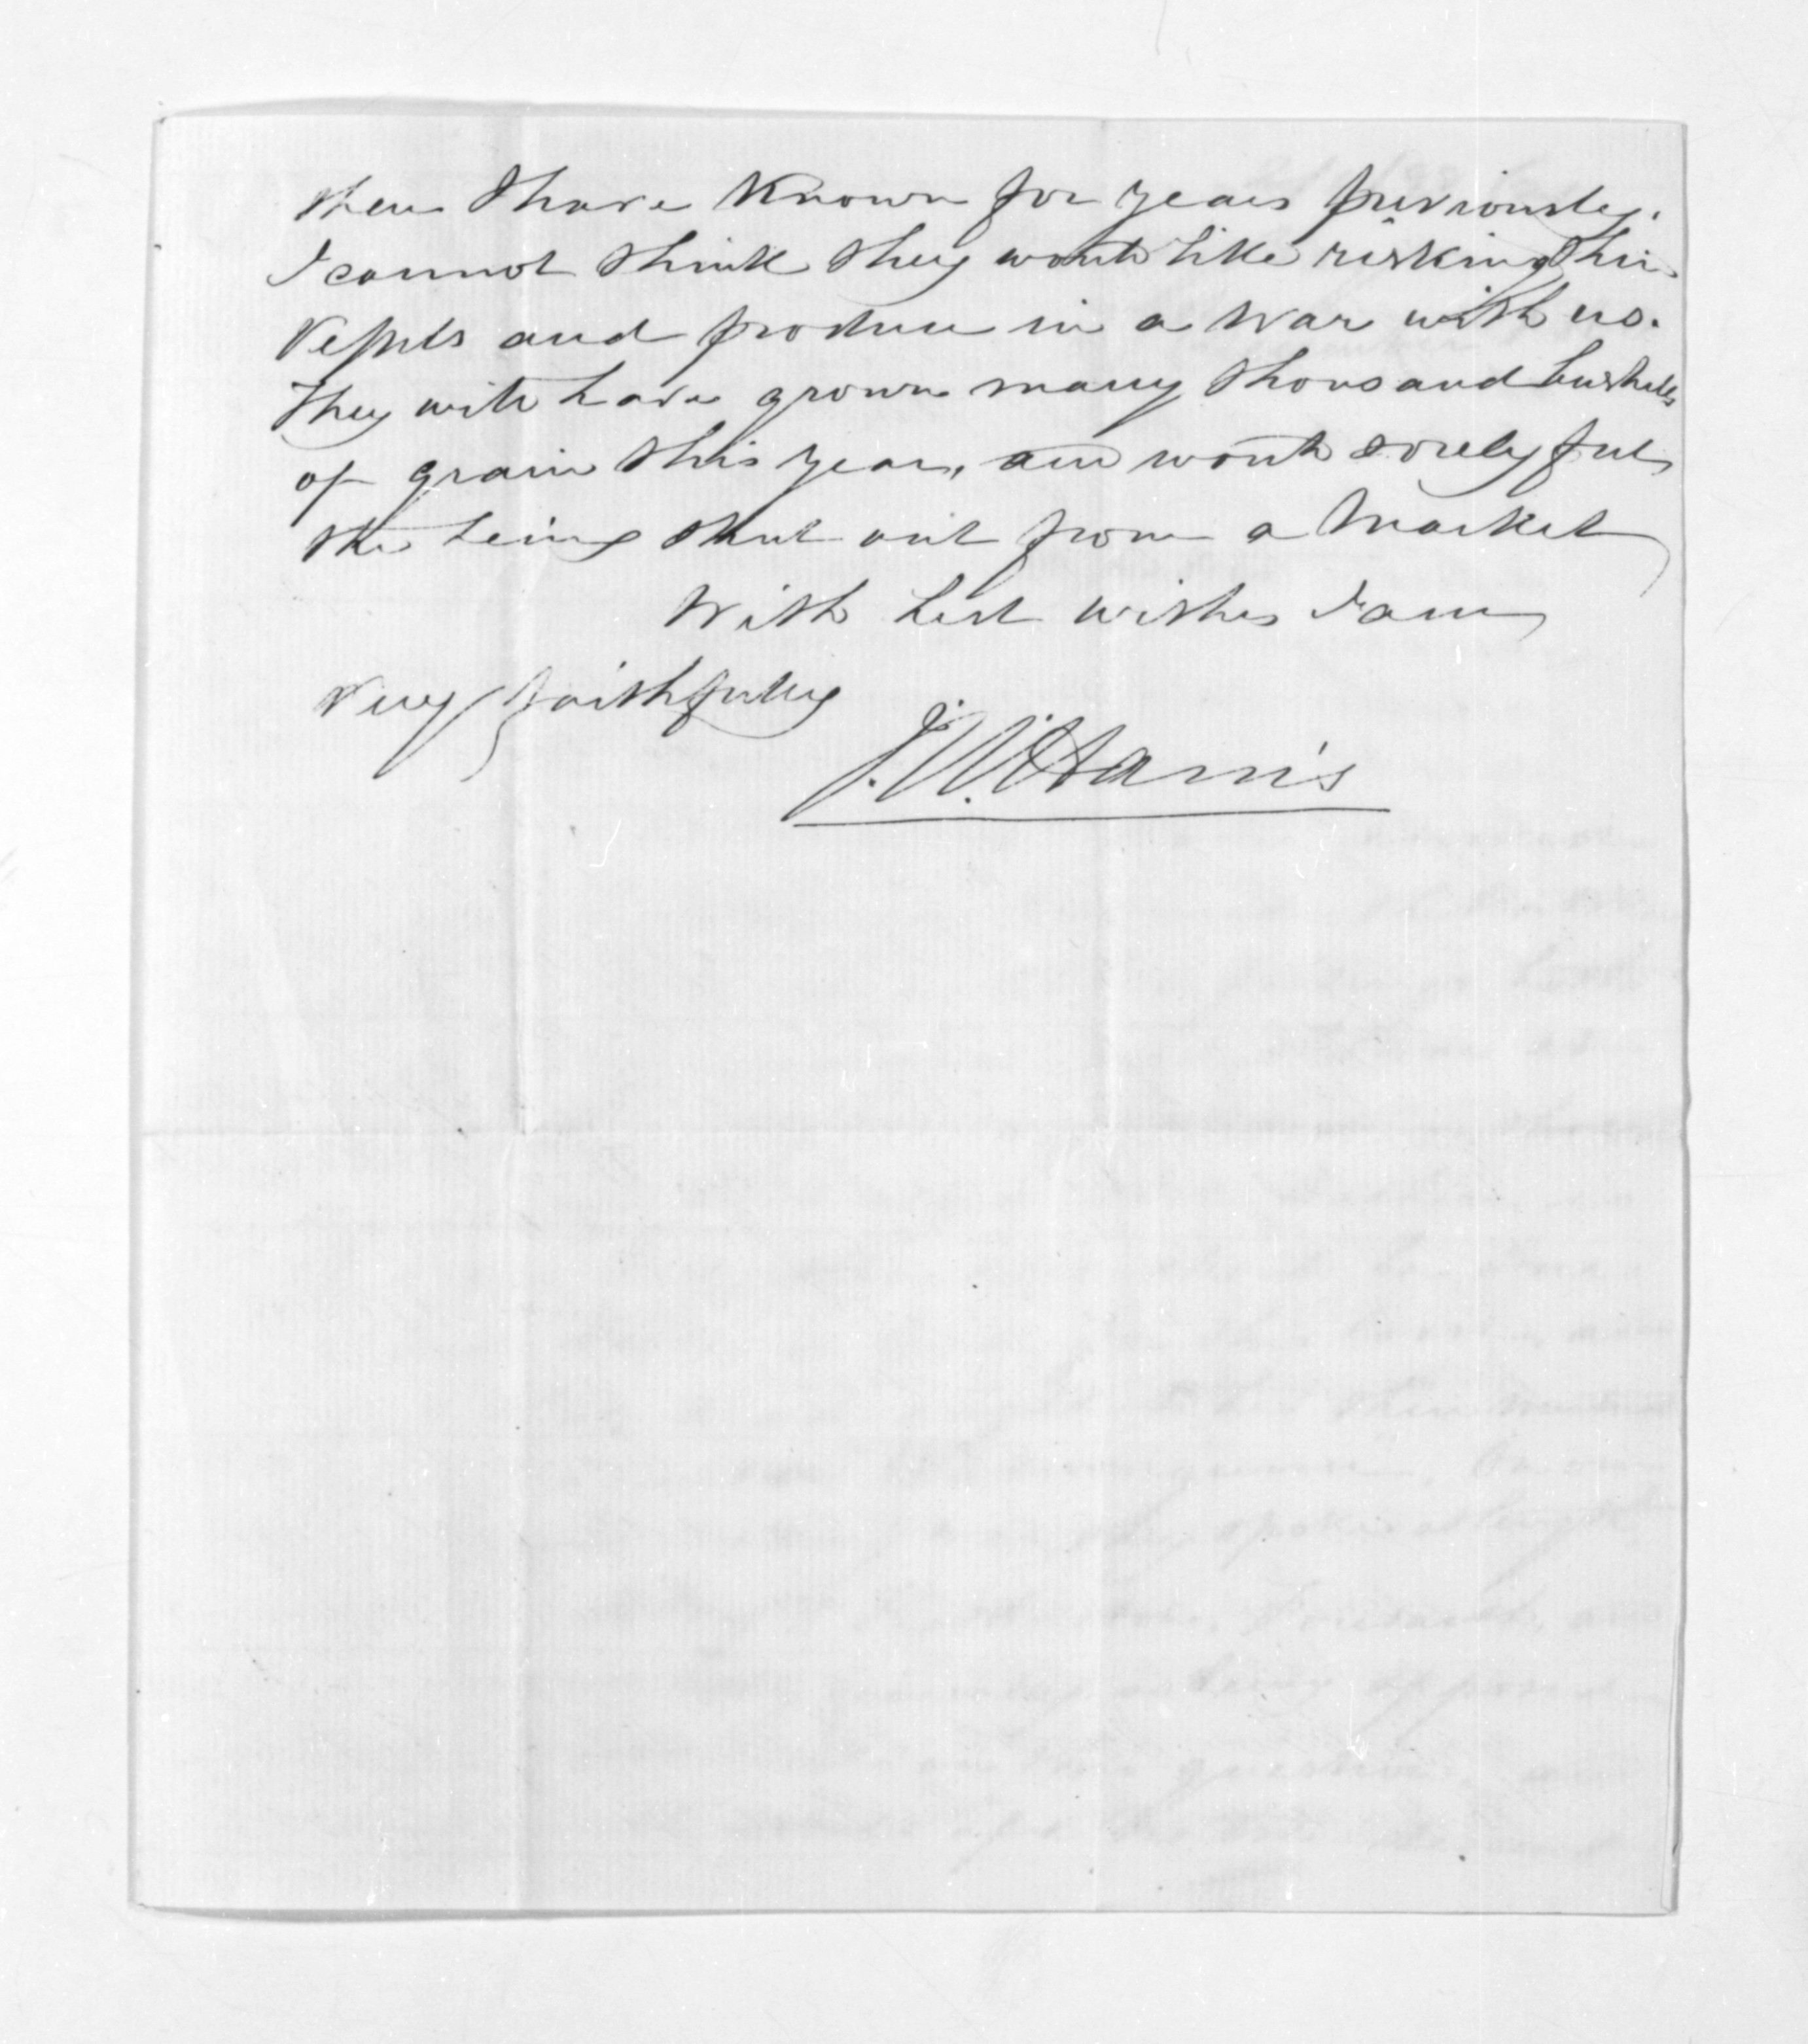 then I have known for years previously.
I cannot think they would like risking their
Vessels and produce in a War with us.
They will have grown many thousand bushels
of grain this year, and would sorely feel
the being shut out from a Market
With best wishes I am
Very faithfully
J. W. Harris